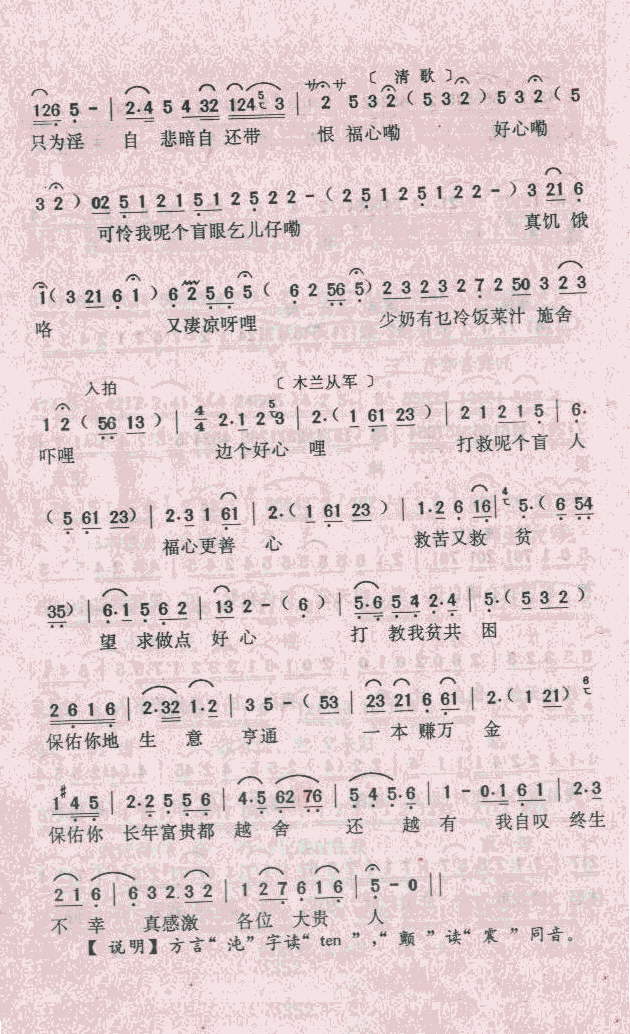 廿 廿 〔 清 歌 〕
126 5 – | 2·4 5 4 32 124 5 3 | 2 5 3 2 ( 5 3 2 ) 5 3 2 ( 5
只为淫 自 悲暗自 还带 恨 福心嘞 好心嘞
3 2 ) 02 5 1 2 1 5 1 2 5 2 2 – ( 2 5 1 2 5 1 2 2 – ) 3 21 6
可怜我呢个盲眼乞儿仔嘞 真饥 饿
1 ( 3 21 6 1 ) 6 2 5 6 5 ( 6 2 56 5 ) 2 3 2 3 2 7 2 50 3 2 3
咯 又凄凉呀哩 少奶有乜冷饭菜汁 施舍
入拍 〔 木兰从军 〕
1 2 ( 56 13 ) | 4/4 2·1 2 5 3 | 2·( 1 61 23 ) | 2 1 2 1 5 | 6·
吓哩 边个好心 哩 打救呢个盲 人
( 5 61 23 ) | 2·3 1 61 | 2·( 1 61 23 ) | 1·2 6 16 | 4 5·( 6 54
福心更善 心 救苦又救 贫
35 ) | 6·1 5 6 2 | 13 2 – ( 6 ) | 5·6 5 4 2·4 | 5·( 5 3 2 )
望 求做点 好 心 打 教我贫共 困
2 6 1 6 | 2·32 1·2 | 3 5 – ( 53 | 23 21 6 61 | 2·( 1 21 ) 6
保佑你地 生 意 亨通 一 本 赚万 金
1 #4 5 | 2·2 5 5 6 | 4·5 62 76 | 5 4 5·6 | 1 – 0·1 6 1 | 2·3
保佑你 长年富贵都 越 舍 还 越 有 我自叹 终生
2 1 6 | 6 3 2 3 2 | 1 2 7 6 1 6 | 5 – 0 ||
不 幸 真感激 各位 大贵 人
【 说明】方言“ 沌” 字读“ ten ”,“ 颤 ”读“ 震 ”同音。